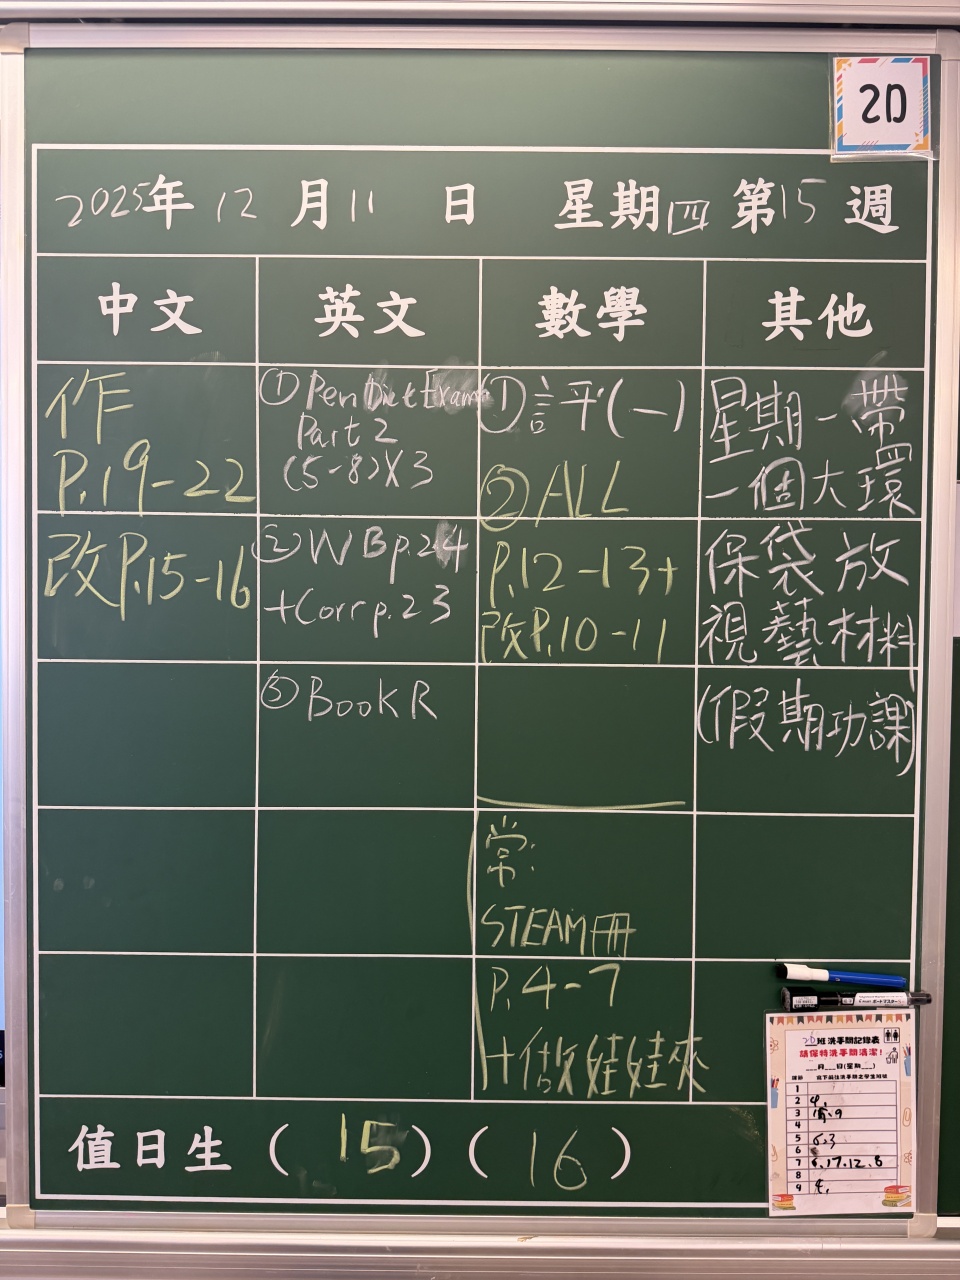 2D
2025年 12 月 11 日 星期四 第 15 週
中文
英文
數學
其他
作
P.19-22
改P.15-16
①Pen Dict Exam
Part 2
(5-8)X3
②WB p.24
+Corr p.23
③Book R
①評(一)
②ALL
P.12-13+
改P.10-11
常:
STEAM冊
P.4-7
+做娃娃夾
星期一帶
一個大環
保袋放
視藝材料
(假期功課)
值日生 ( 15 ) ( 16 )
2D班洗手間記錄表
請保持洗手間清潔!
___月___日(星期___)
課節 寫下前往洗手間之學生班號
1
2 4.
3
4
5 6.3
6
7 6.17.12.8
8
9